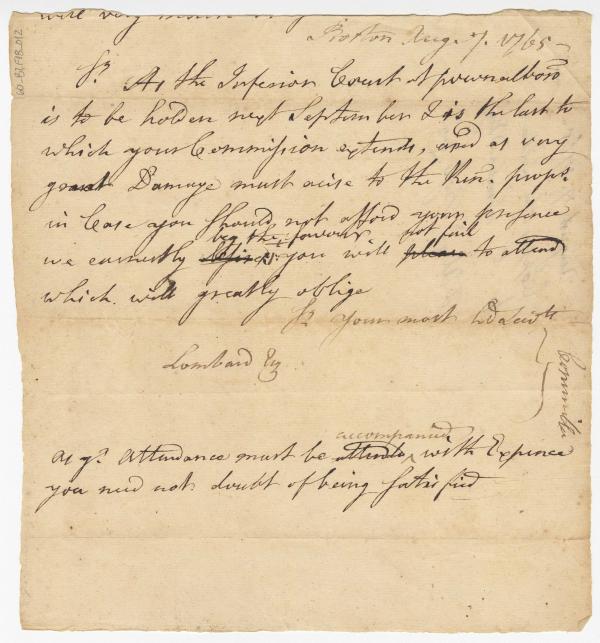 will very much
Boston Aug. 7. 1765
Sr. As the Inferior Court at pownalboro
is to be holden next September & is the last to
which your Commission extends, and as very
great Damage must arise to the Ken. propr.
in Case you should not afford your presence
beg the favour not fail
we earnestly desire you will please to attend
which will greatly oblige
Sr. your most
Lombard Esq
Committee
accompanied
As yr. attendance must be attended with Expence
you need not doubt of being satisfied
GO-B7.F18.D12